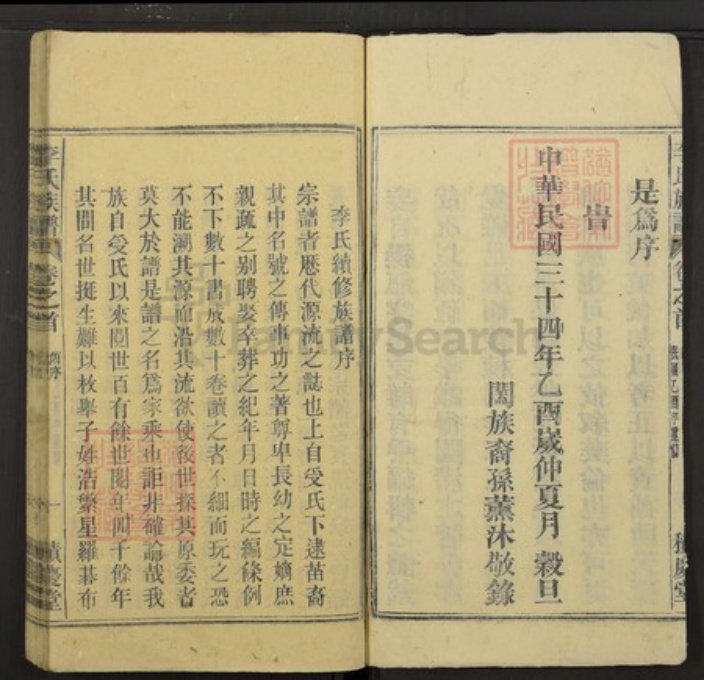 是爲序
旹
中華民國三十四年乙酉歲仲夏月 穀旦
闔族裔孫薰沐敬錄
李氏族譜 卷之首
李氏續修族譜序
宗譜者歷代源流之誌也上自受氏下逮苗裔
其中名號之傳事功之著尊卑長幼之定嫡庶
親疏之别聘娶卒葬之紀年月日時之編條例
不下數十書成數十卷讀之者不細而玩之恐
不能溯其源而沿其流欲使後世探其原委者
莫大於譜是譜之名爲家乘也詎非確論哉我
族自受氏以來閱世百有餘世閱年四千餘年
其間名世挺生難以枚舉子姓浩繁星羅碁布
李氏族譜 卷之首 序 一 積慶堂
FamilySearch